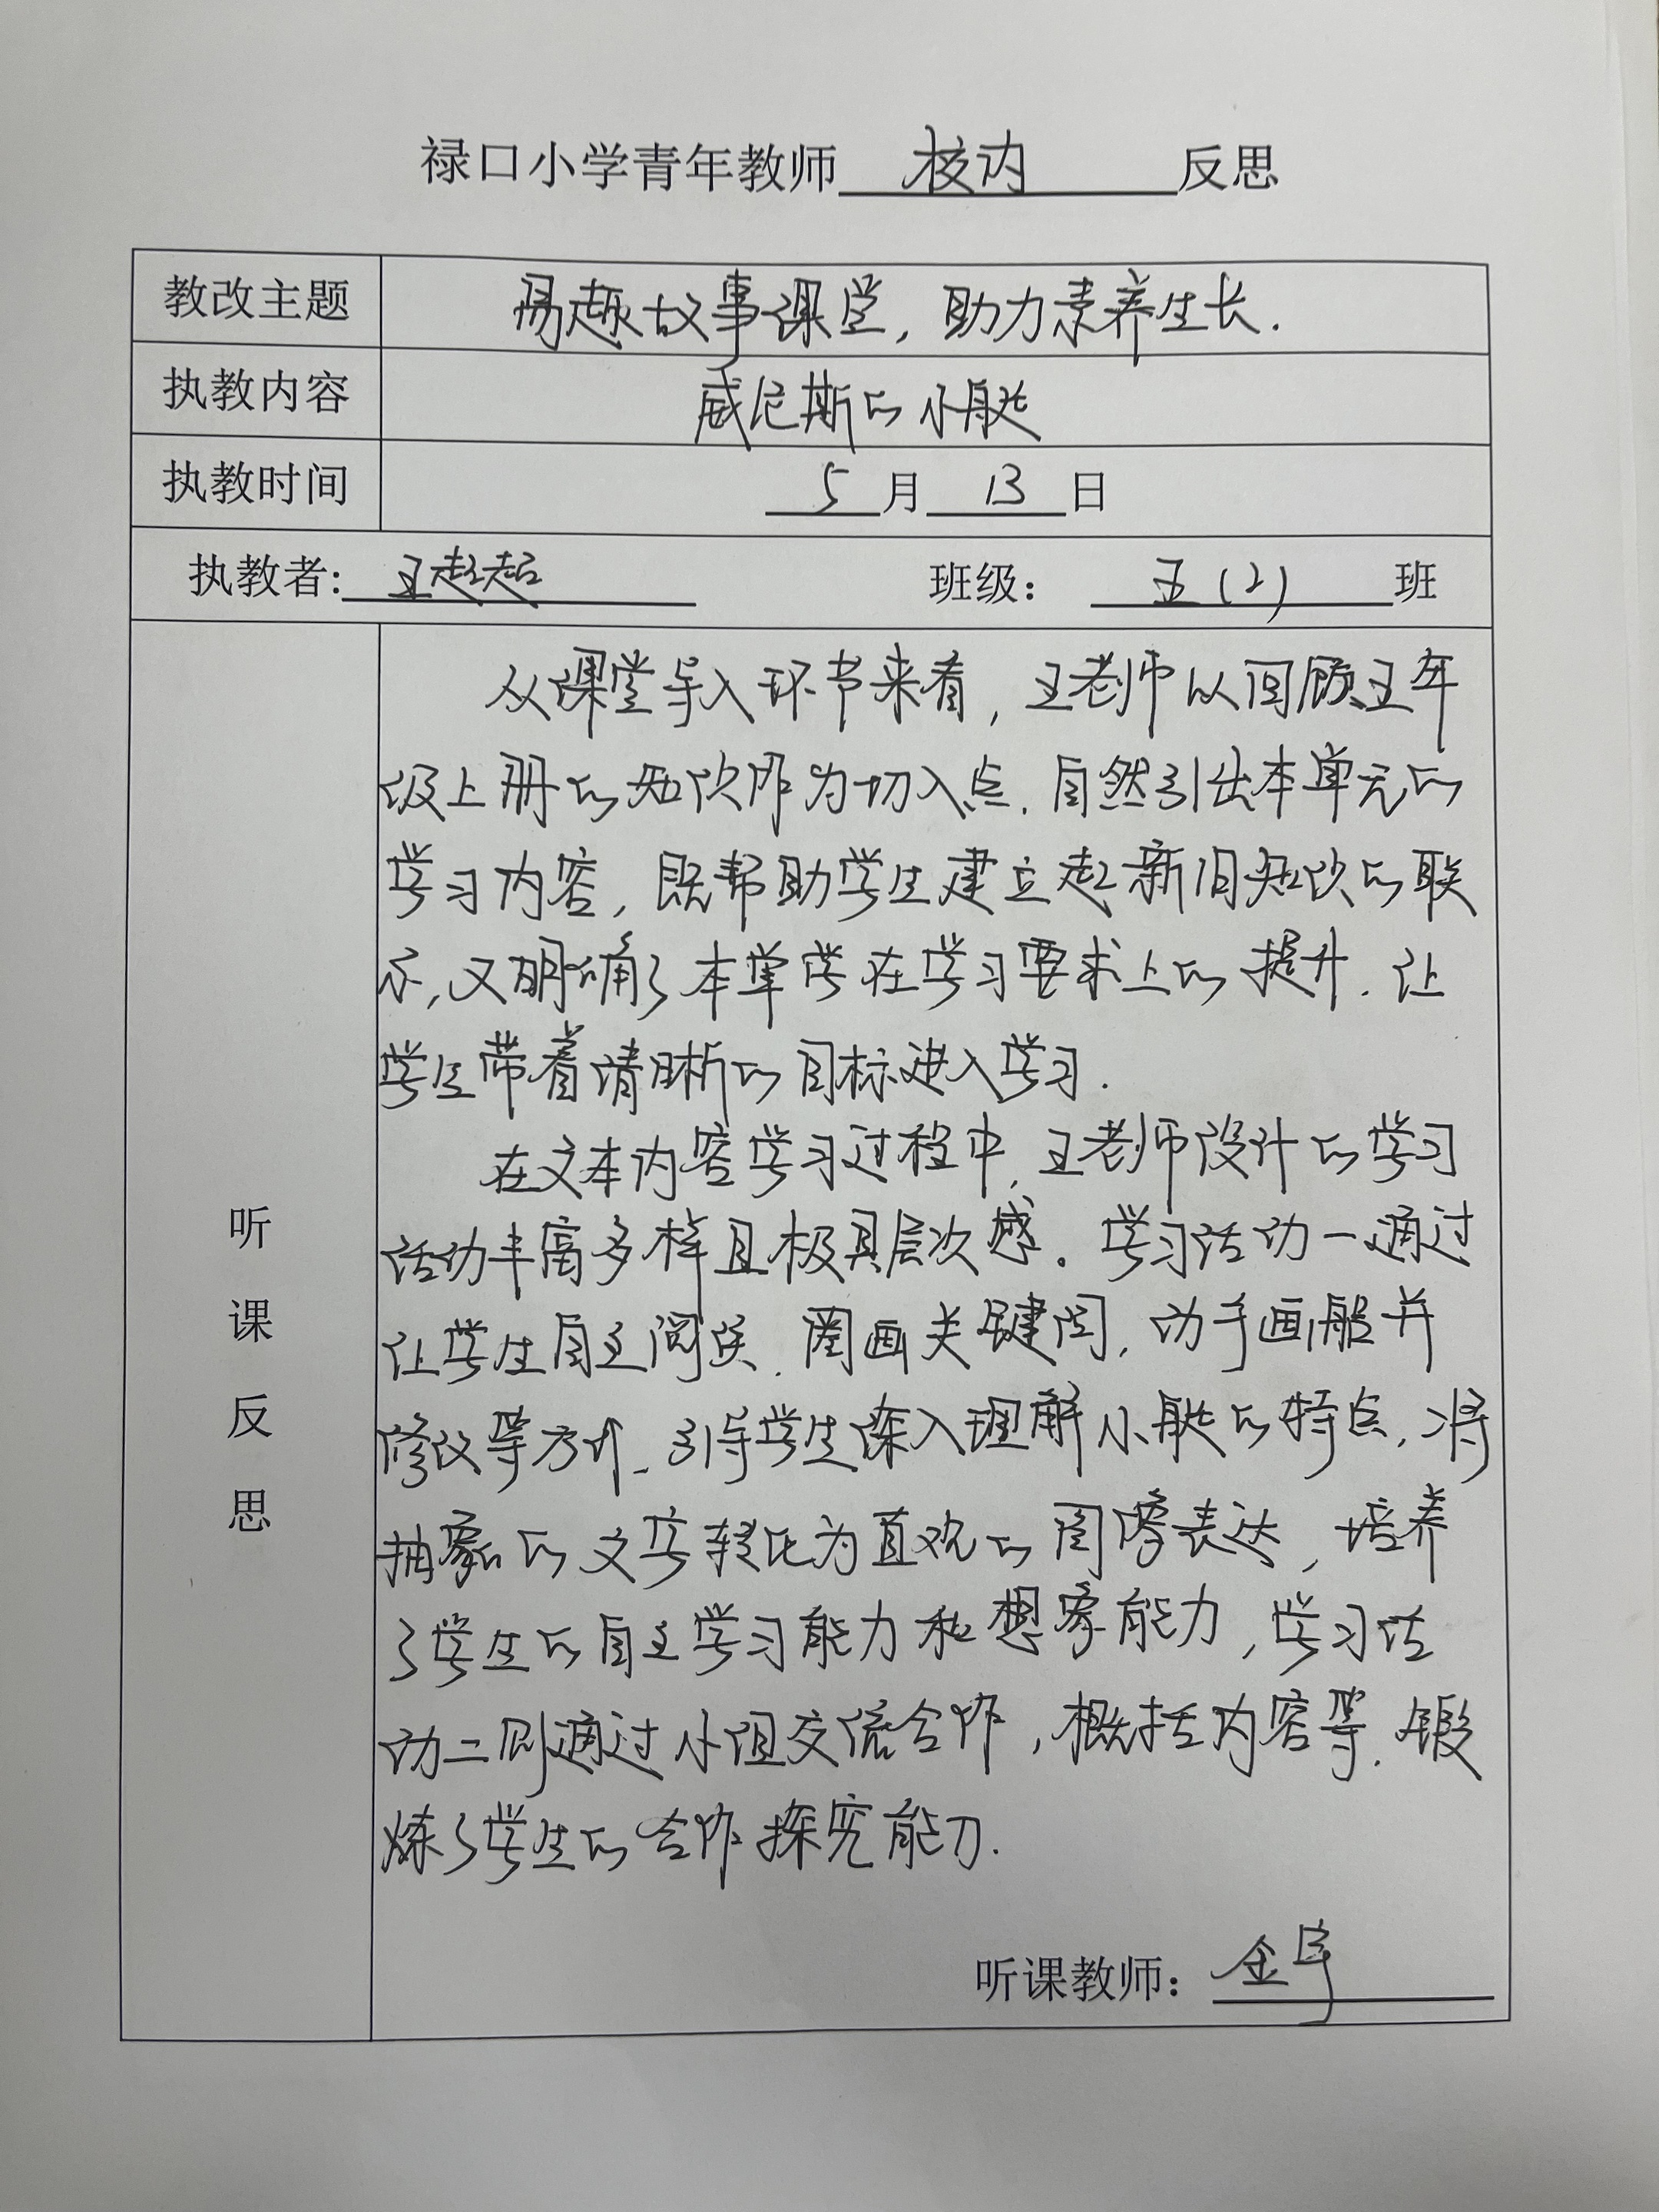 禄口小学青年教师 校内 反思
教改主题 易趣故事课堂，助力素养生长.
执教内容 威尼斯的小艇
执教时间 5 月 13 日
执教者: 王赵超 班级： 五(2) 班
听课反思
从课堂导入环节来看，王老师以回顾五年
级上册的知识作为切入点.自然引出本单元的
学习内容，既帮助学生建立起新旧知识的联
系，又明确了本单学在学习要求上的提升.让
学生带着清晰的目标进入学习.
在文本内容学习过程中，王老师设计的学习
活动丰富多样且极具层次感。学习活动一通过
让学生自主阅读.圈画关键词，动手画船并
修改等方式，引导学生深入理解小艇的特点，将
抽象的文字转化为直观的图像表达，培养
了学生的自主学习能力和想象能力，学习活
动二则通过小组交流合作，概括内容等.锻
炼了学生的合作探究能力.
听课教师： 金宇